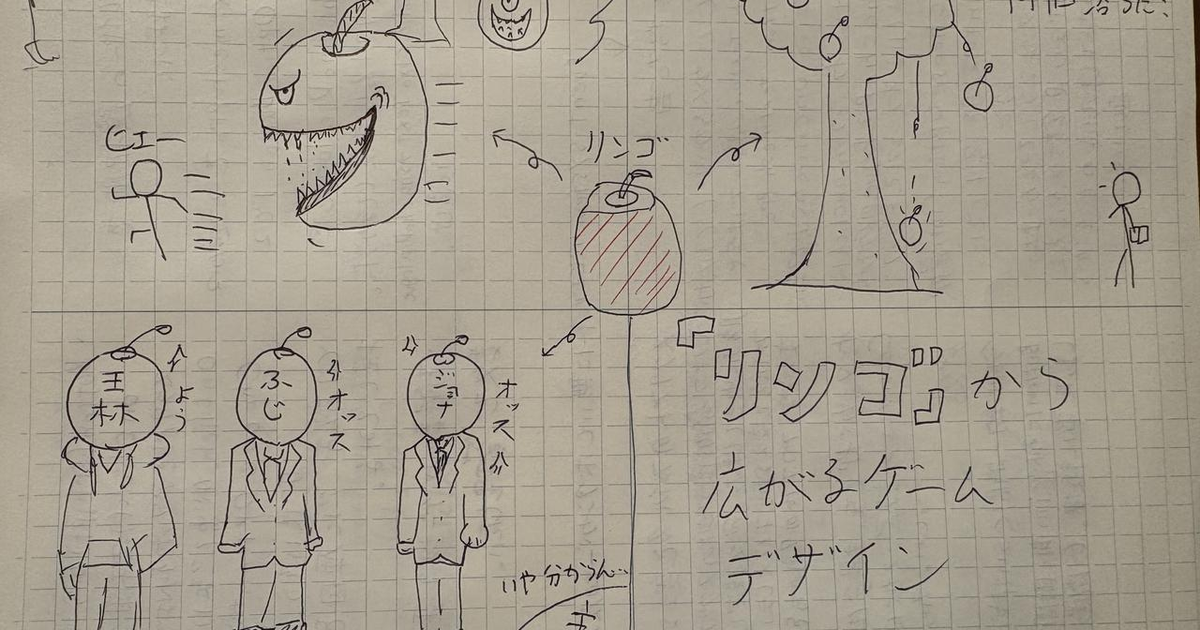 ヒエー
リンゴ
王林
よう
ふじ
オッス
ジョナ
オッス
『リンゴ』から
広がるゲーム
デザイン
いや分からん…